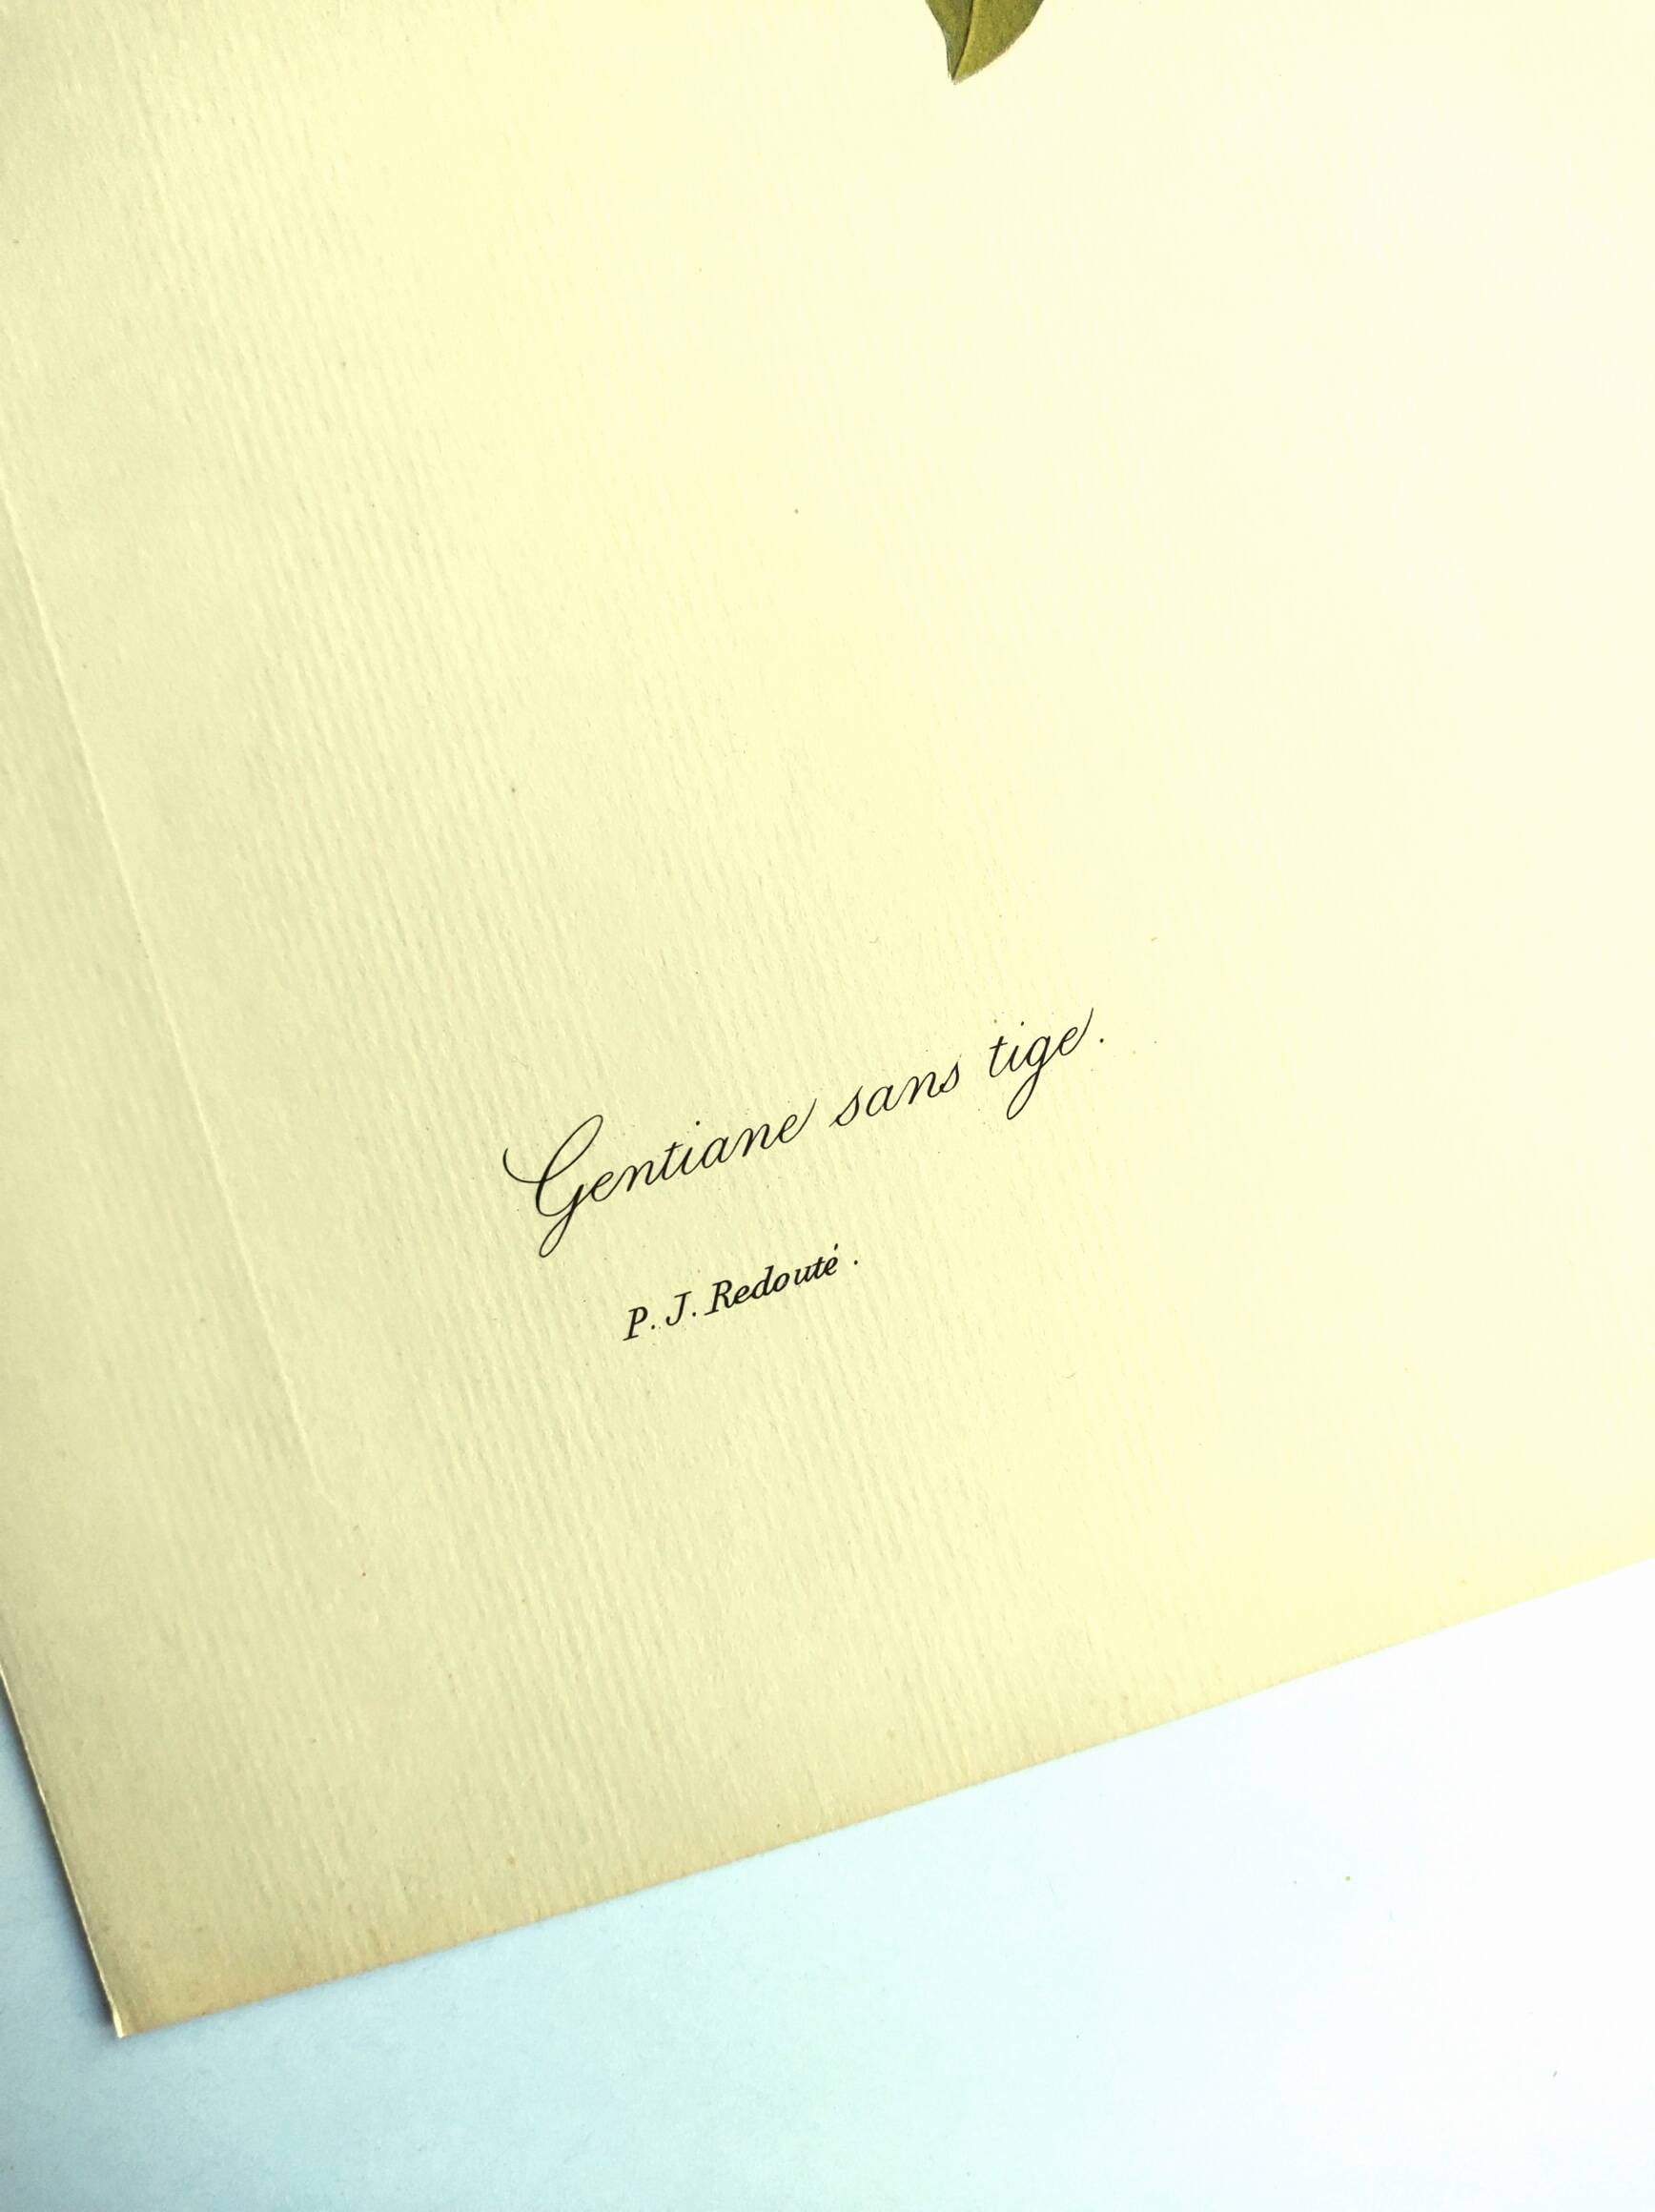 Gentiane sans tige.
P. J. Redouté.